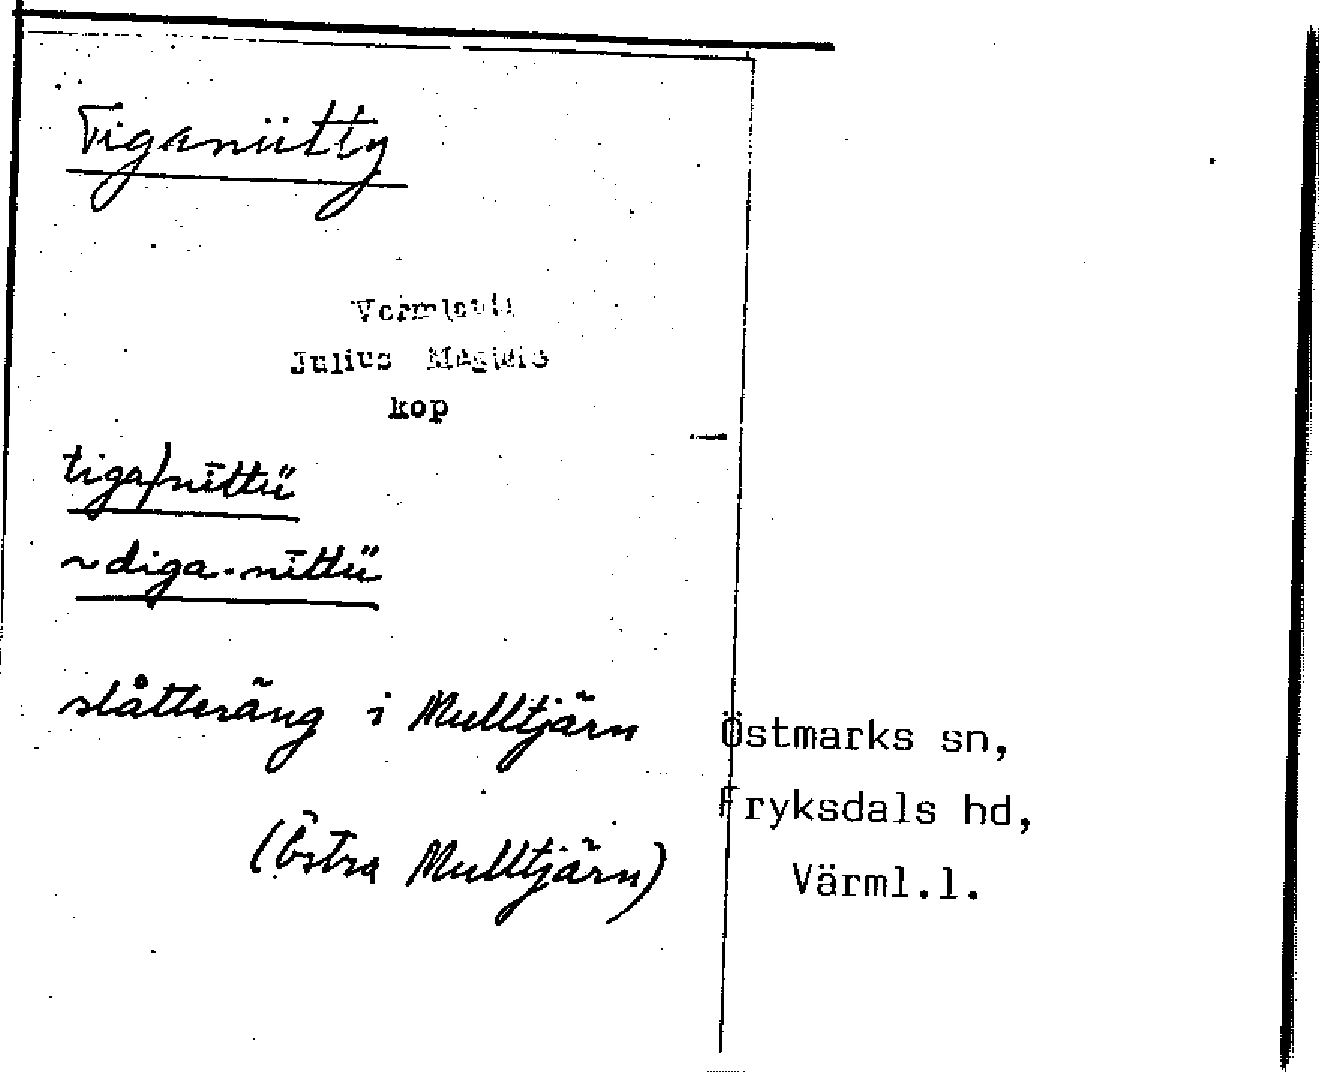 Tiganiitty
Julius
kop
tiga/nīttü
~ diga-nīttü
slåtteräng i Mulltjärn
(Östra Mulltjärn)
Östmarks sn,
Fryksdals hd,
Värml.l.